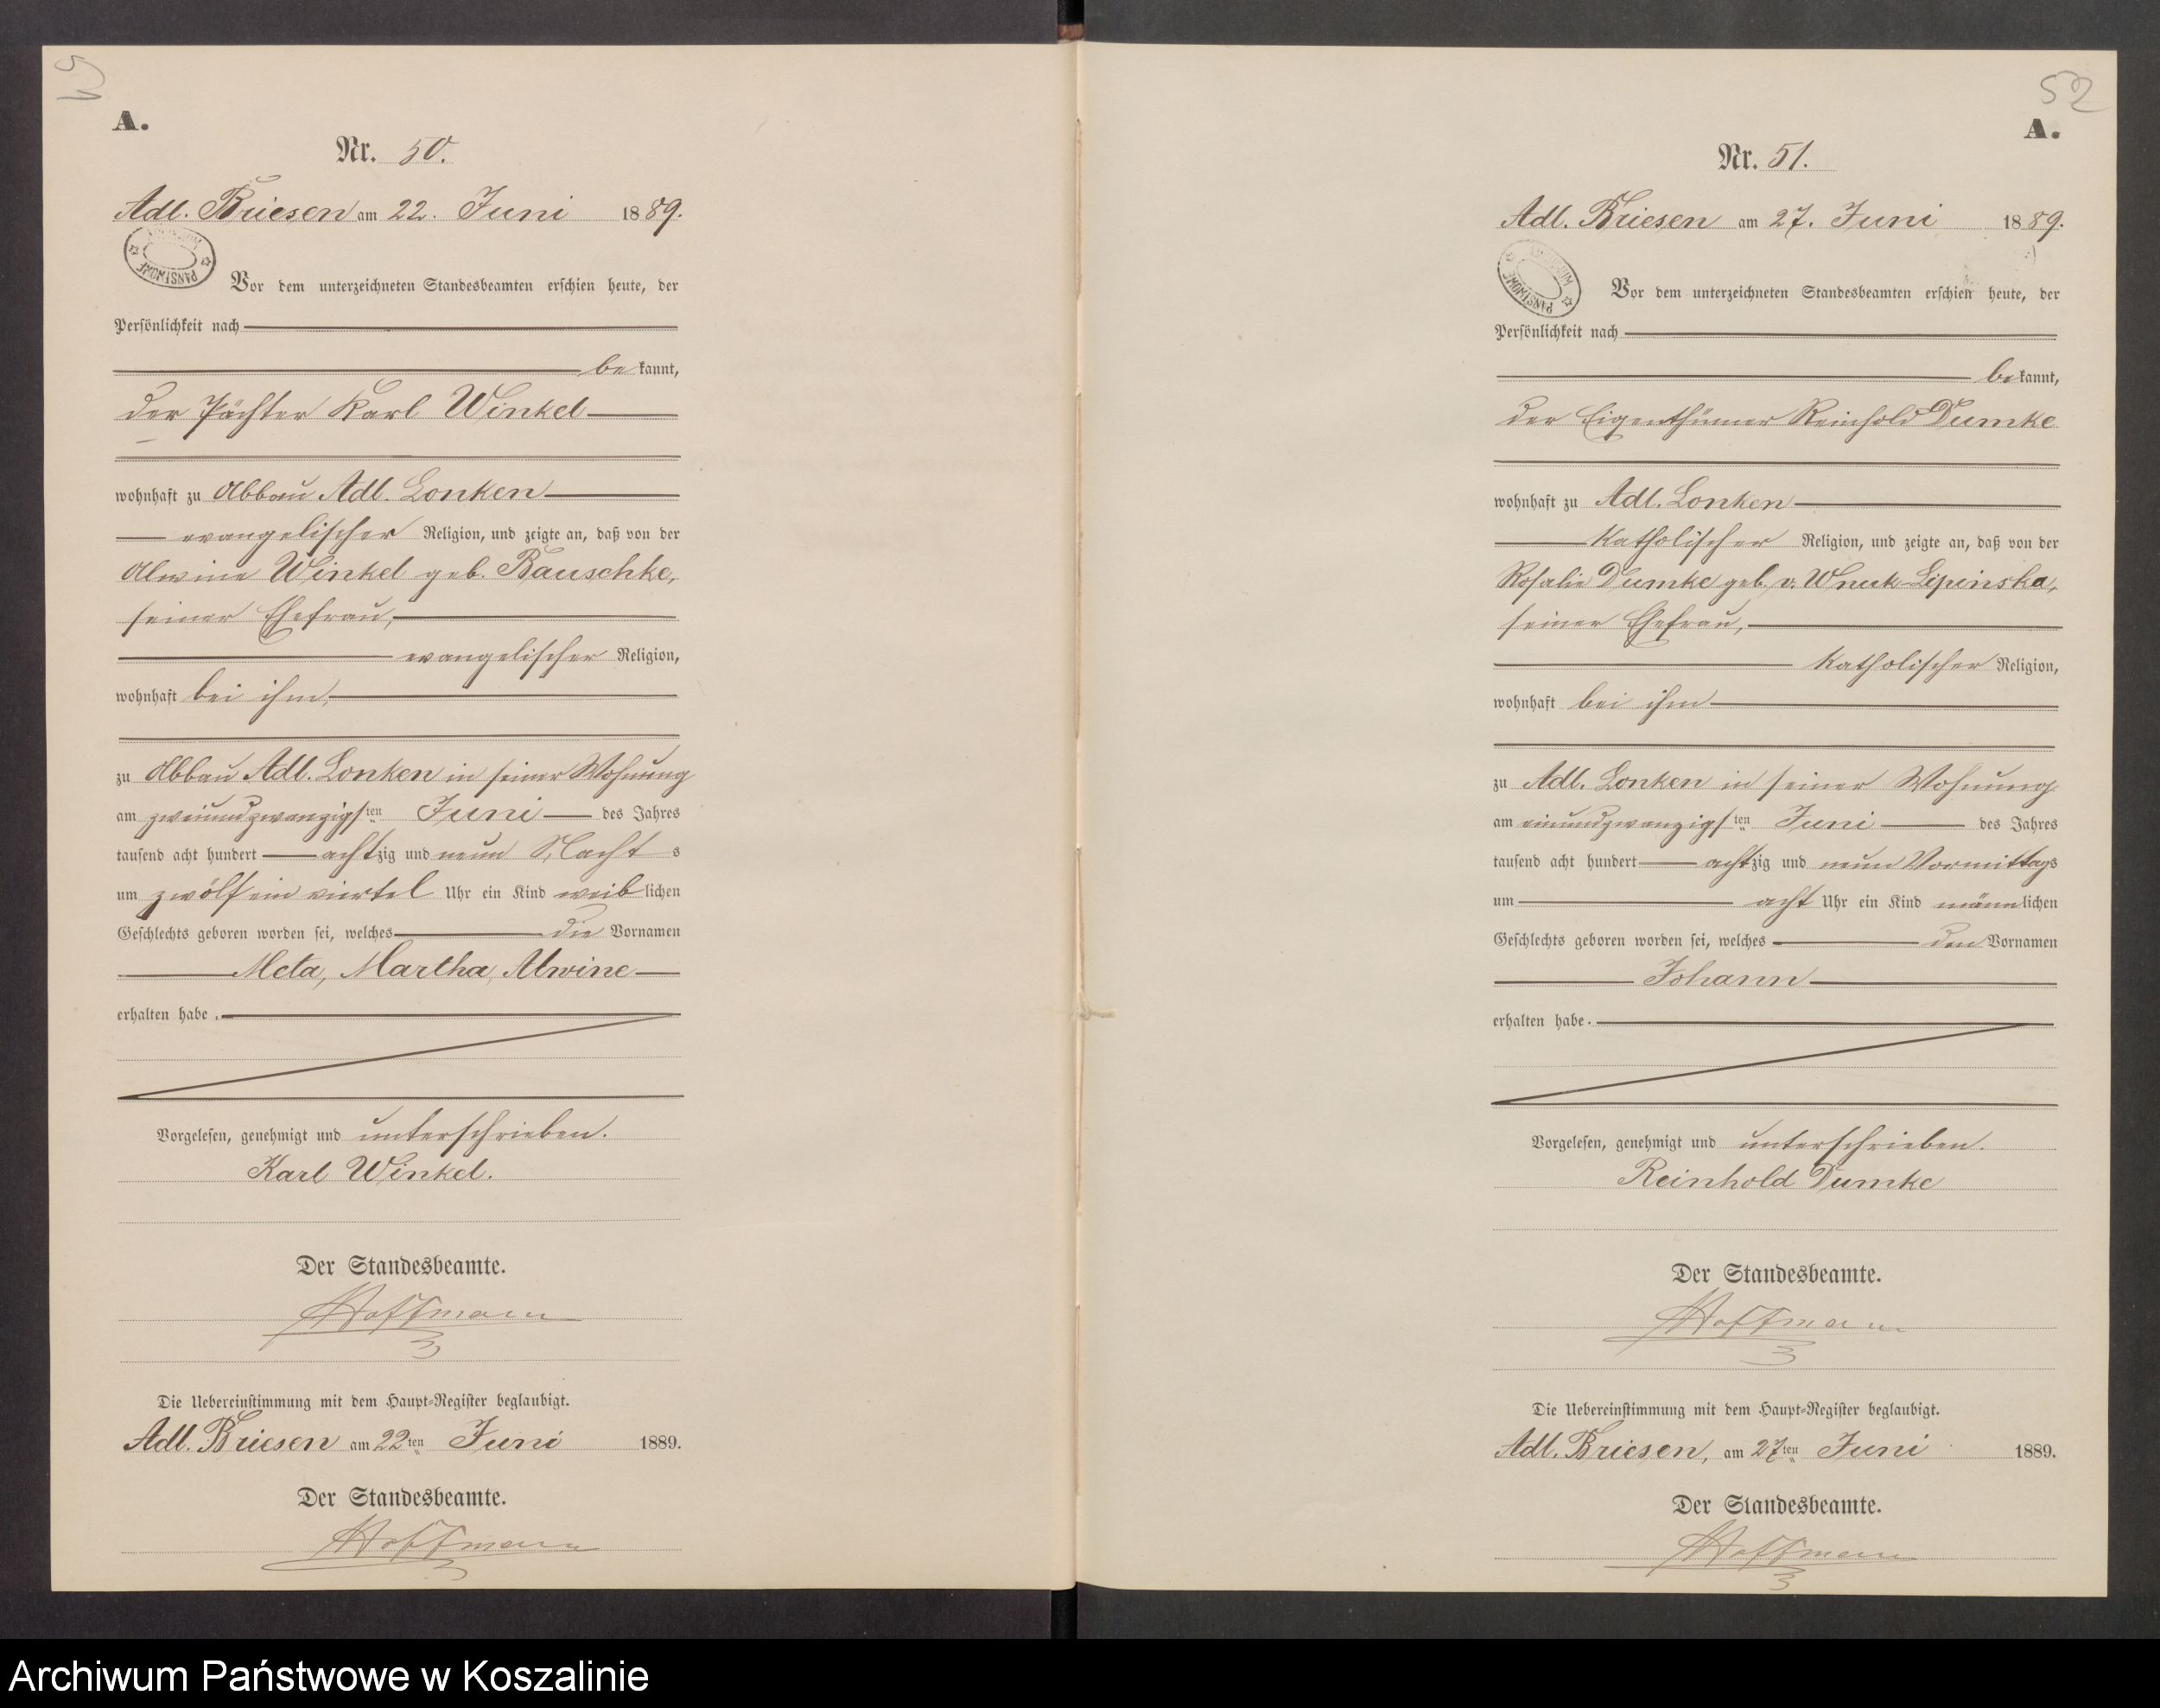 A.
Nr. 50.
Adl. Briesen am 22. Juni 1889.
Vor dem unterzeichneten Standesbeamten erschien heute, der
Persönlichkeit nach
bekannt,
der Pächter Karl Winkel
wohnhaft zu Abbau Adl. Lonken
evangelischer Religion, und zeigte an, daß von der
Alwine Winkel geb. Bauschke,
seiner Ehefrau,
evangelischer Religion,
wohnhaft bei ihm,
zu Abbau Adl. Lonken in seiner Wohnung
am zweiundzwanzigsten Juni des Jahres
tausend acht hundert achtzig und neun Nachts
um zwölf ein viertel Uhr ein Kind weiblichen
Geschlechts geboren worden sei, welches die Vornamen
Meta, Martha, Alwine
erhalten habe.
Vorgelesen, genehmigt und unterschrieben.
Karl Winkel.
Der Standesbeamte.
Hoffmann
Die Uebereinstimmung mit dem Haupt-Register beglaubigt.
Adl. Briesen am 22ten Juni 1889.
Der Standesbeamte.
Hoffmann
52
A.
Nr. 51.
Adl. Briesen am 27. Juni 1889.
PAŃSTWOWE
Vor dem unterzeichneten Standesbeamten erschien heute, der
Persönlichkeit nach
bekannt,
der Eigenthümer Reinhold Dumke
wohnhaft zu Adl. Lonken
katholischer Religion, und zeigte an, daß von der
Rosalie Dumke geb. v. Wnuk-Lipinska,
seiner Ehefrau,
katholischer Religion,
wohnhaft bei ihm
zu Adl. Lonken in seiner Wohnung
am einundzwanzigsten Juni des Jahres
tausend acht hundert achtzig und neun Vormittags
um acht Uhr ein Kind männlichen
Geschlechts geboren worden sei, welches den Vornamen
Johann
erhalten habe.
Vorgelesen, genehmigt und unterschrieben.
Reinhold Dumke
Der Standesbeamte.
Hoffmann
Die Uebereinstimmung mit dem Haupt-Register beglaubigt.
Adl. Briesen, am 27ten Juni 1889.
Der Standesbeamte.
Hoffmann
Archiwum Państwowe w Koszalinie